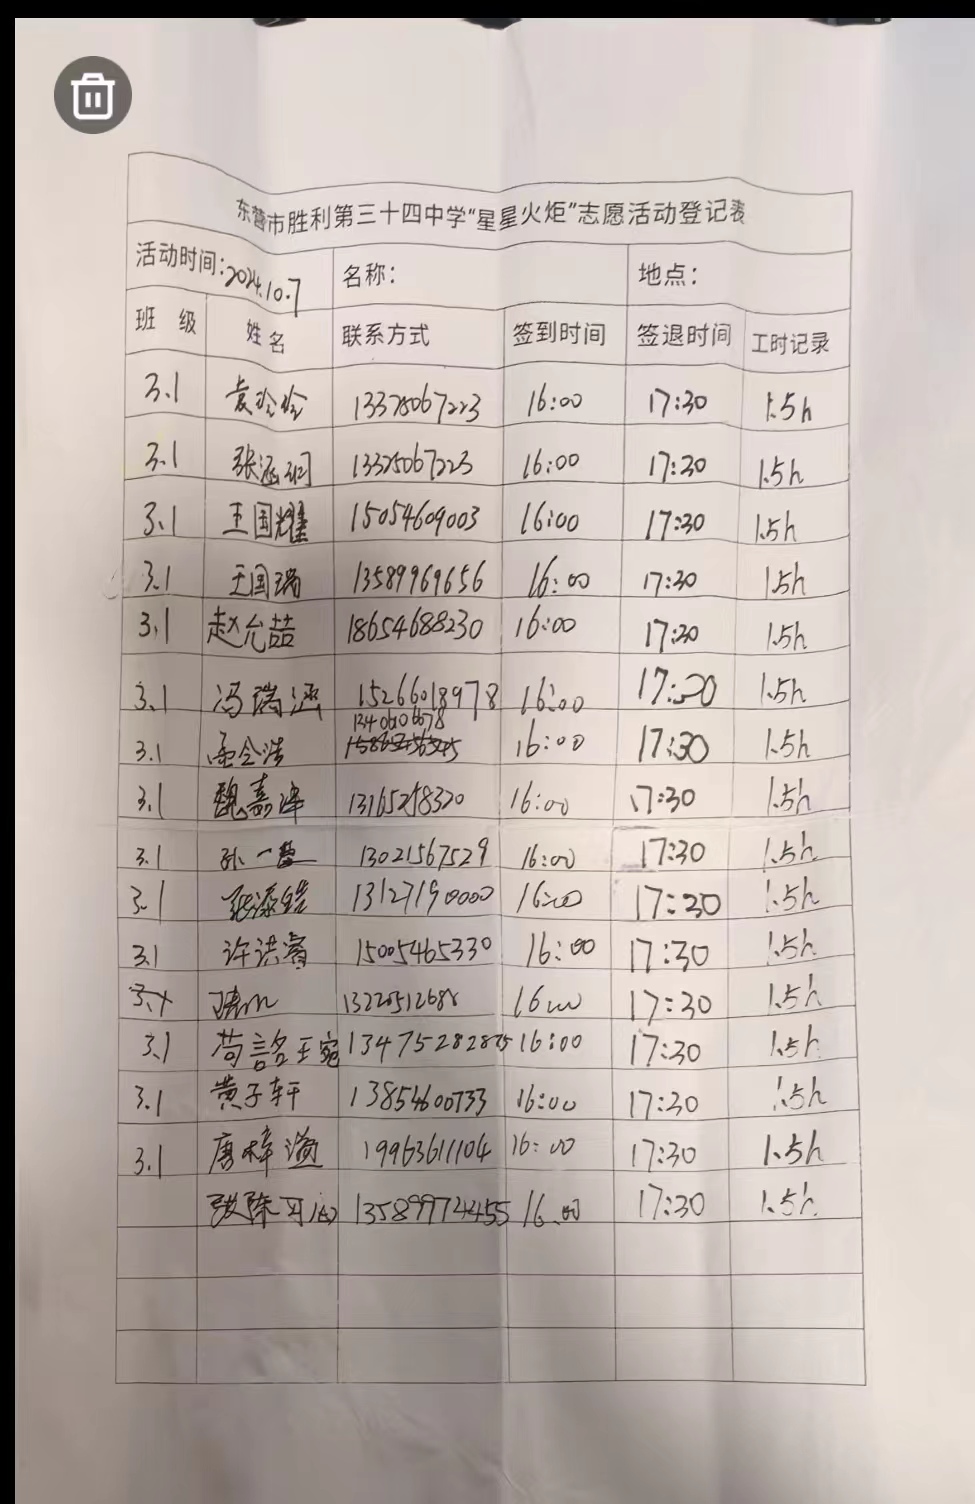 东营市胜利第三十四中学“星星火炬”志愿活动登记表
活动时间:2024.10.7 名称: 地点:
班 级 姓名 联系方式 签到时间 签退时间 工时记录
3.1 袁玲玲 13325067223 16:00 17:30 1.5h
3.1 张涵润 13325067223 16:00 17:30 1.5h
3.1 王国耀 15054609003 16:00 17:30 1.5h
3.1 王国瑞 13589969656 16:00 17:30 1.5h
3.1 赵允喆 18654688230 16:00 17:30 1.5h
3.1 冯瑞涵 15266018978 16:00 17:30 1.5h
3.1 孟令浩 16:00 17:30 1.5h
3.1 魏嘉泽 13165258320 16:00 17:30 1.5h
3.1 孙一 13021567529 16:00 17:30 1.5h
3.1 张 13127190000 16:00 17:30 1.5h
3.1 许洪睿 15005465330 16:00 17:30 1.5h
16:00 17:30 1.5h
3.1 苟言名王宛 16:00 17:30 1.5h
3.1 黄子轩 13854600733 16:00 17:30 1.5h
3.1 唐梓涵 19963611104 16:00 17:30 1.5h
张陈 135899724455 16:00 17:30 1.5h